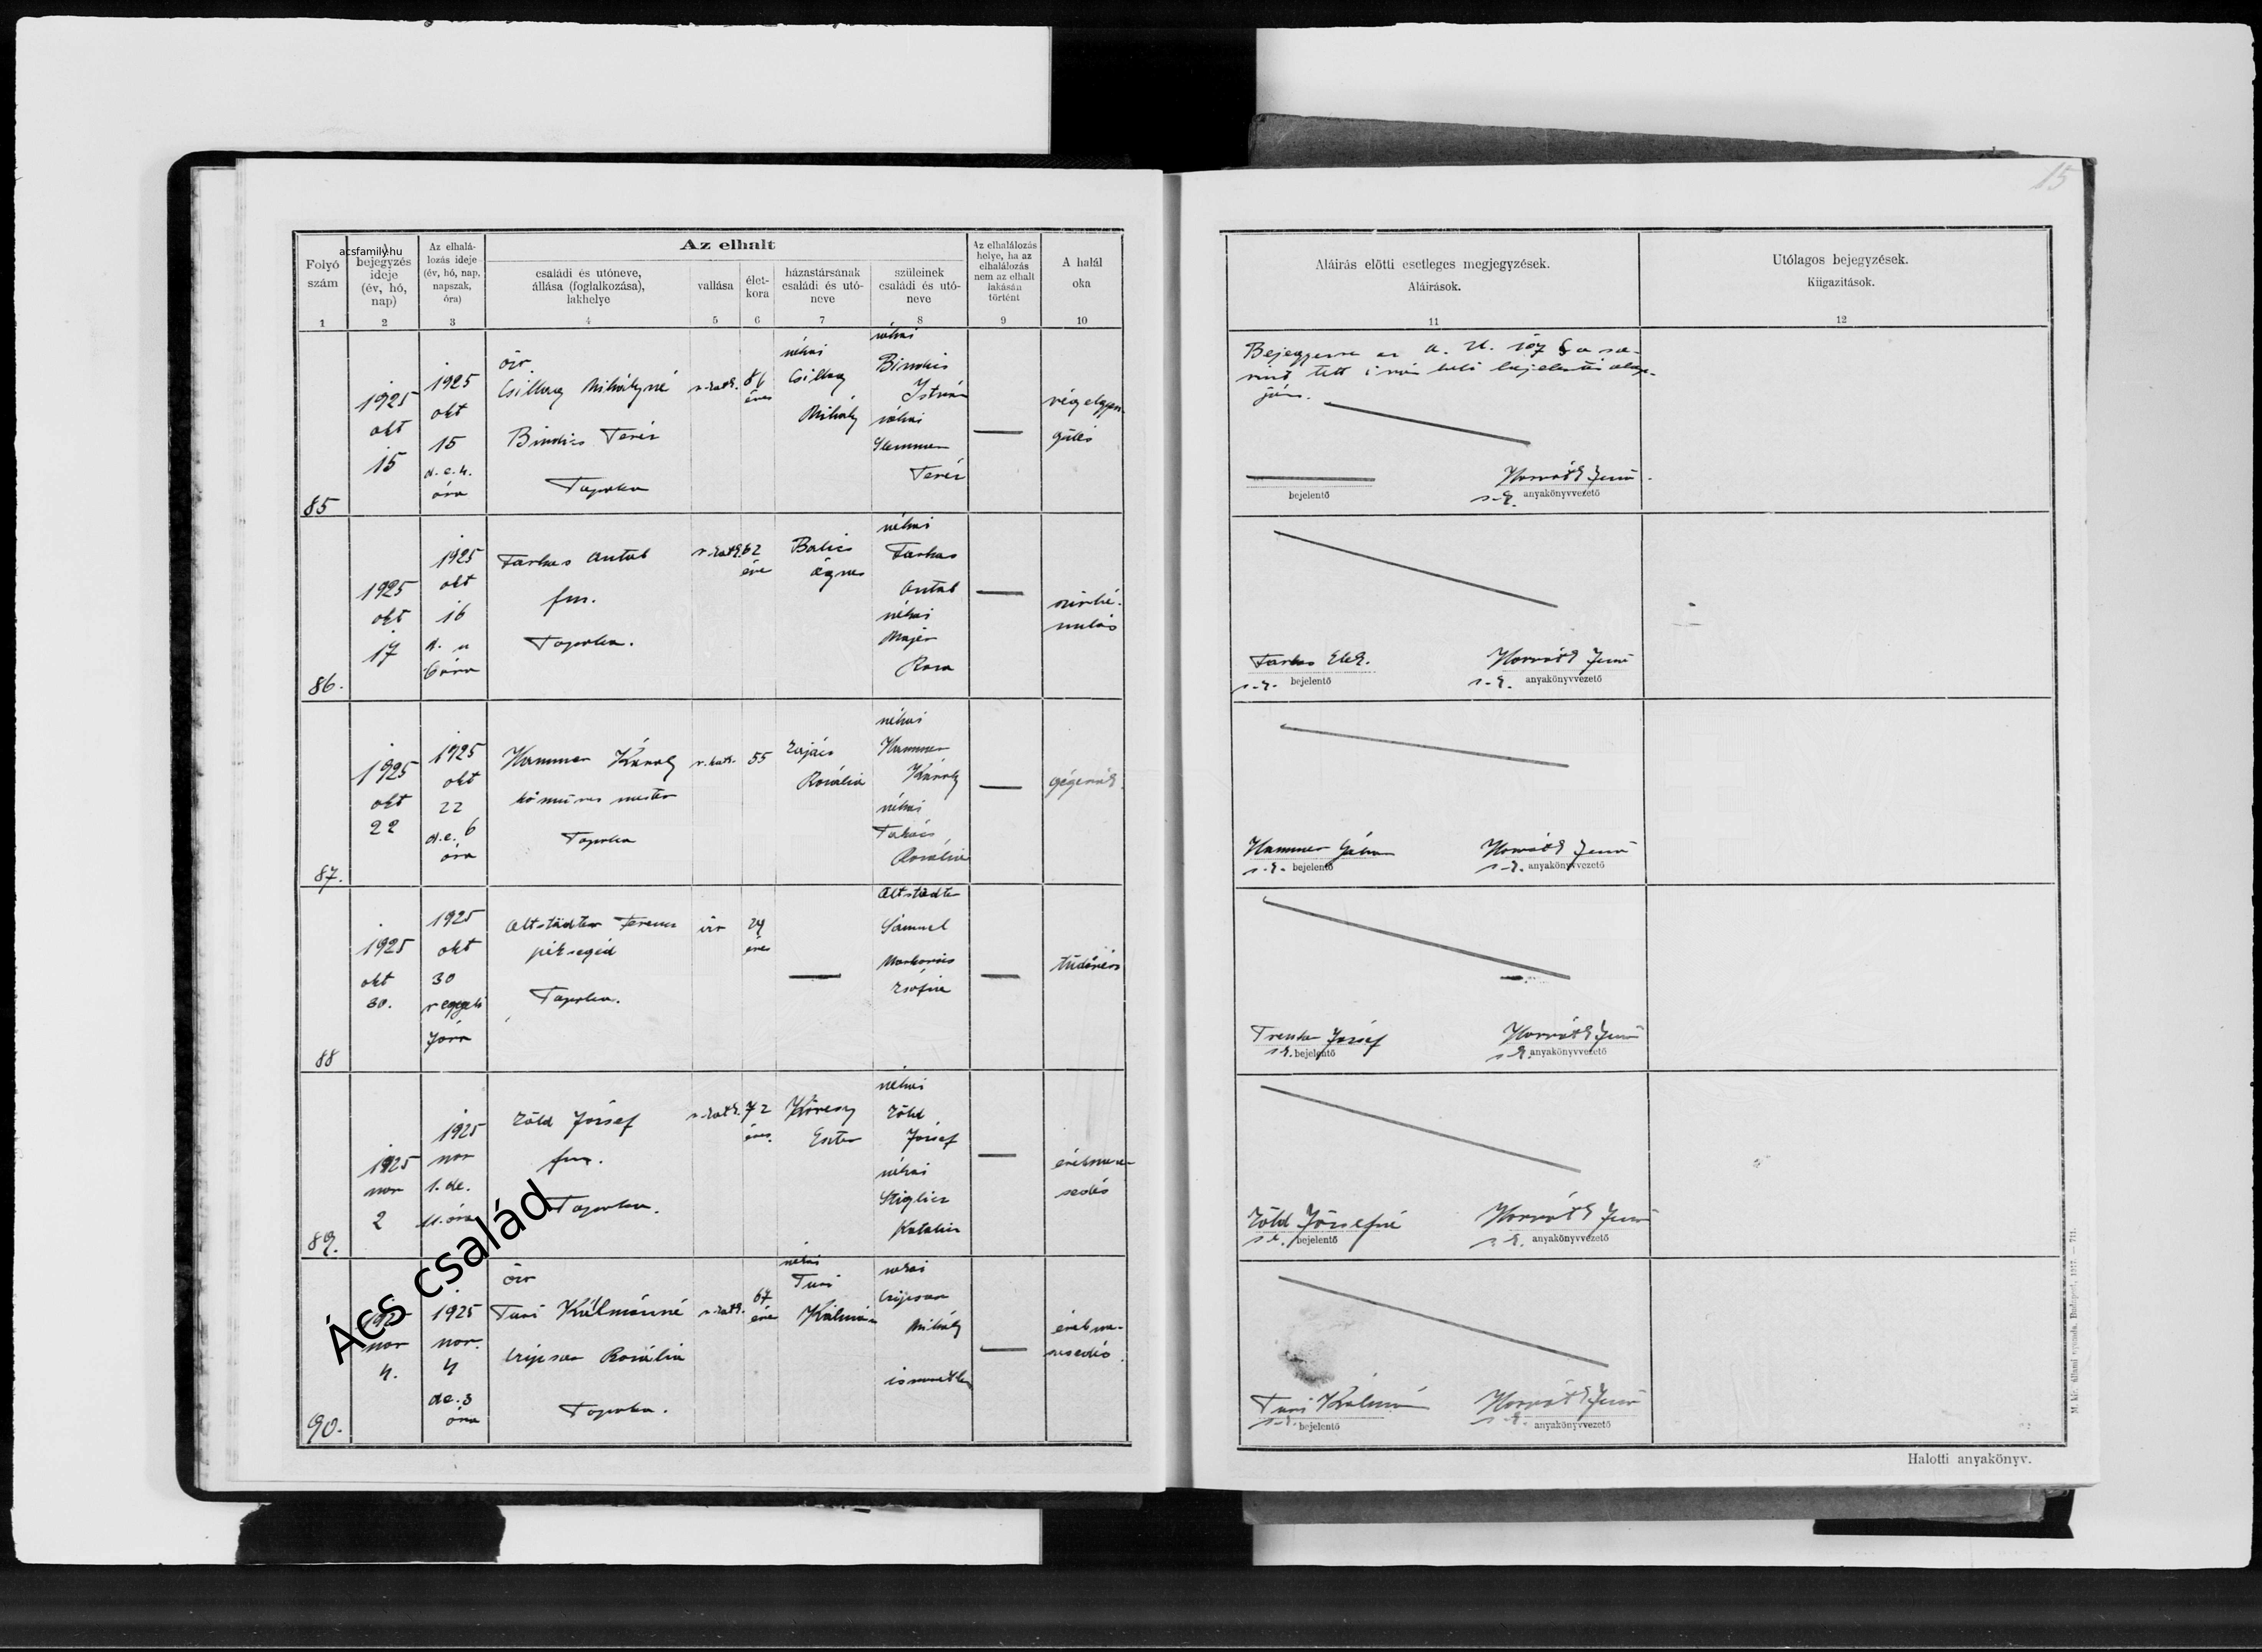 15
acsfamily.hu
Folyó szám
A bejegyzés ideje (év, hó, nap)
Az elhalálozás ideje (év, hó, nap, napszak, óra)
Az elhalt
családi és utóneve, állása (foglalkozása), lakhelye
vallása
életkora
házastársának családi és utóneve
szüleinek családi és utóneve
Az elhalálozás helye, ha az elhalálozás nem az elhalt lakásán történt
A halál oka
1 2 3 4 5 6 7 8 9 10
85
1925 okt 15
1925 okt 15 d.e. 4. óra
özv
Csillag Mihályné
Teréz
Tapolca
r. kath.
86 éves
néhai Csillag Mihály
néhai
István
néhai
Teréz
végelgyengülés
86.
1925 okt 17
1925 okt 16 d. u 6 óra
Farkas Antal
fm.
Tapolca.
r. kath.
62 éve
Ágnes
néhai Farkas Antal
néhai Majer Rosa
87.
1925 okt 22
1925 okt 22 d.e. 6 óra
Hammer Károly
kőműves mester
Tapolca
r. kath.
55
Zajács Rozália
néhai Hammer Károly
néhai Takács Rozália
gégerák.
88
1925 okt 30.
1925 okt 30 reggeli 7 óra
Altstädter Ferenc
péksegéd
Tapolca.
izr
24 éves
Altstädter Sámuel
Markovics Zsófia
tüdővész
89.
1925 nov 2
1925 nov 1. de. 11. óra
Zöld József
fm.
Tapolca.
r. kath.
72 éves.
Eszter
néhai Zöld József
néhai Stiglicz Katalin
érelmeszesedés
90.
1925 nov 4.
1925 nov. 4 de. 3 óra
özv
Turi Kálmánné
Rozália
Tapolca.
r. kath.
67 éve
néhai Turi Kálmán
néhai
Mihály
ismeretlen
érelmeszesedés.
Ács család
Aláírás előtti esetleges megjegyzések.
Aláírások.
11
Utólagos bejegyzések.
Kiigazítások.
12
bejelentő
Horváth Jenő
s. k. anyakönyvvezető
Farkas Elek.
s. k. bejelentő
Horváth Jenő
s. k. anyakönyvvezető
Hammer
s. k. bejelentő
Horváth Jenő
s. k. anyakönyvvezető
József
s. k. bejelentő
Horváth Jenő
s. k. anyakönyvvezető
Zöld Józsefné
s. k. bejelentő
Horváth Jenő
s. k. anyakönyvvezető
Turi Kálmán
s. k. bejelentő
Horváth Jenő
s. k. anyakönyvvezető
Halotti anyakönyv.
M. kir. állami nyomda. Budapest, 1917. — 711.